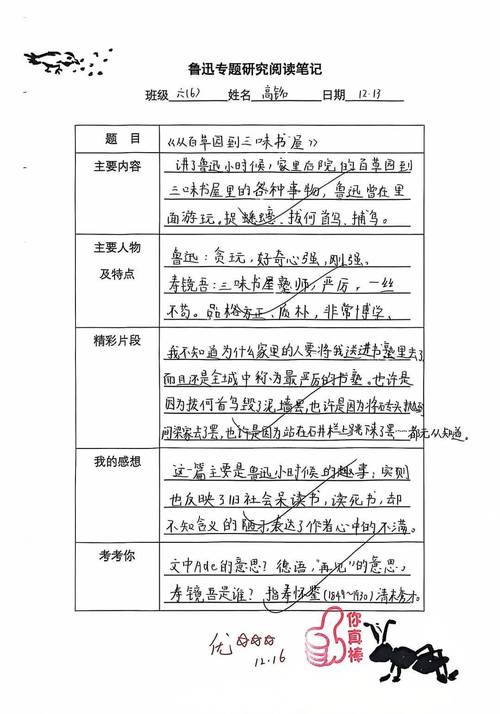 鲁迅专题研究阅读笔记
班级 六(6) 姓名 高 日期 12.13
题 目 《从百草园到三味书屋》
主要内容
讲了鲁迅小时候,家里后院的百草园到
三味书屋里的各种事物,鲁迅曾在里
面游玩。捉蟋蟀、拔何首乌、捕鸟。
主要人物
及特点
鲁迅:贪玩,好奇心强,刚强。
寿镜吾:三味书屋塾师,严厉,一丝
不苟。品格方正、质朴,非常博学、
精彩片段
我不知道为什么家里的人要将我送进书塾里去了
而且还是全城中称为最严厉的书塾。也许是
因为拔何首乌毁了泥墙罢,也许是因为将砖头抛到
间梁家去了罢,也许是因为站在石井栏上跳下来了罢……都无从知道。
我的感想
这一篇主要是鲁迅小时候的趣事;实则
也反映了旧社会呆读书,读死书,却
不知含义的陋习表达了作者心中的不满。
考考你
文中Ade的意思?德语,"再见"的意思。
寿镜吾是谁?指寿怀鉴(1849~1930)清末秀才。
优 ☆☆☆
12.16
你真棒